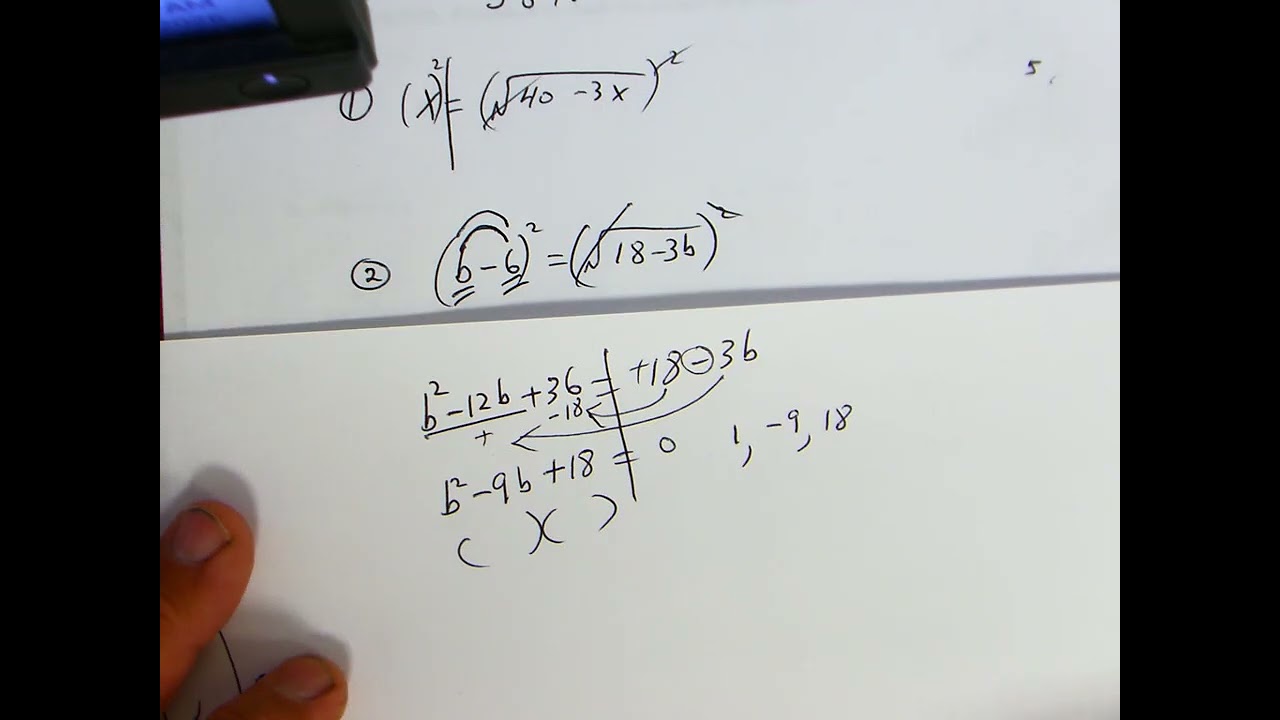 AM
① (x)² = (√40 - 3x)²
5.
② (b - 6)² = (√18 - 3b)²
b² - 12b + 36 = +18 - 3b
+ -18
b² - 9b + 18 = 0 1, -9, 18
( )( )